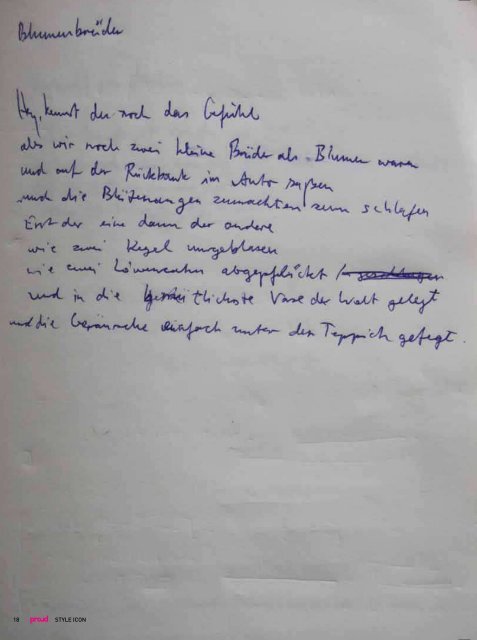 Blumenbrüder
Hey, kennst du noch das Gefühl
als wir noch zwei kleine Brüder als Blumen waren
und auf der Rückbank im Auto saßen
und die Blütenaugen zumachten zum schlafen
Erst der eine dann der andere
wie zwei Kegel umgeblasen
wie zwei Löwenzahn abgepflückt /
und in die gemütlichste Vase der Welt gelegt
und die Geräusche einfach unter den Teppich gefegt.
18 proud STYLE ICON